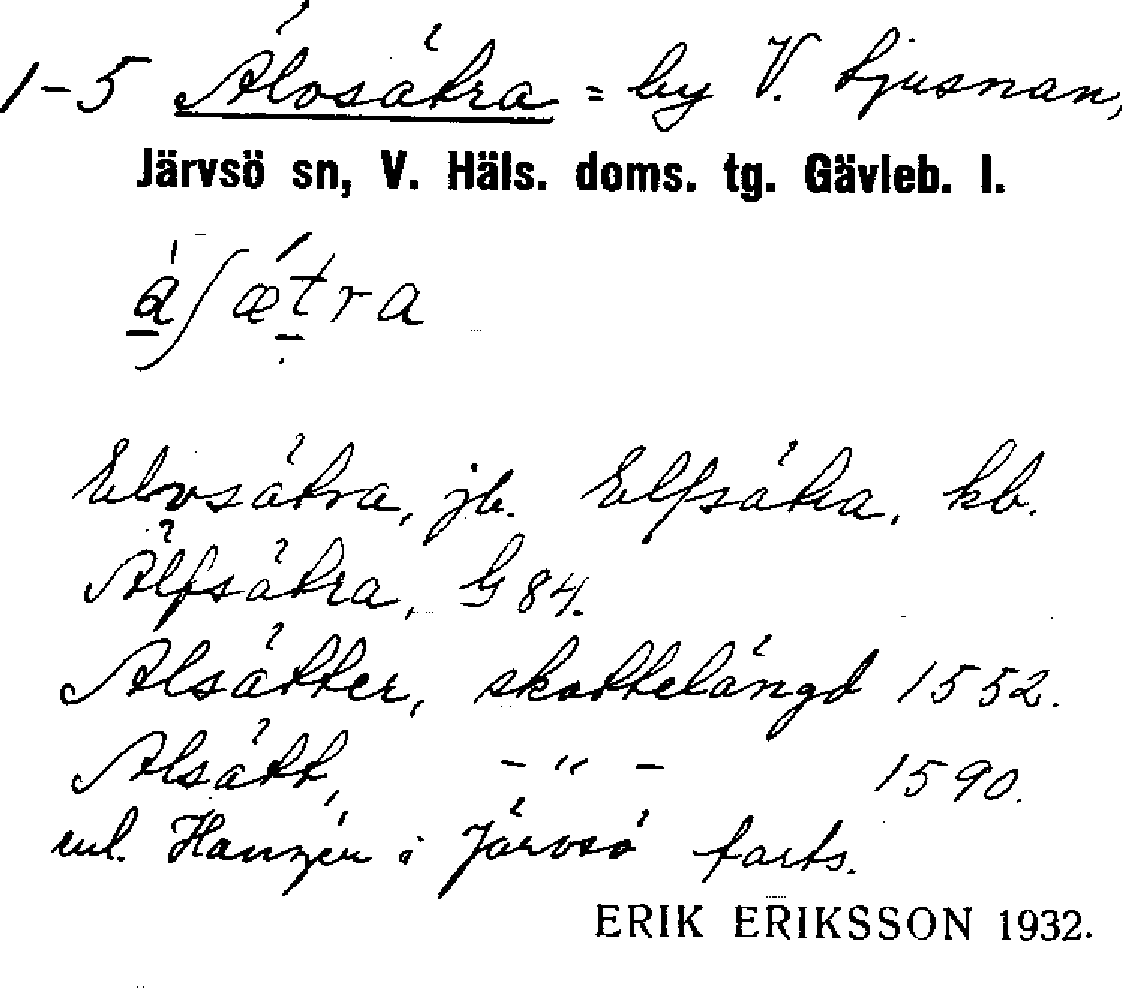 1-5 Älvsätra = by V. Ljusnan,
Järvsö sn, V. Häls. doms. tg. Gävleb. l.
a̠ʃæt̠ra
Elvsätra, jb. Elfsätra, kb.
Älfsätra, G 84.
Alsätter, skattelängd 1552.
Alsätt, -"- 1590.
enl. Hanzén i Järvsö forts.
ERIK ERIKSSON 1932.